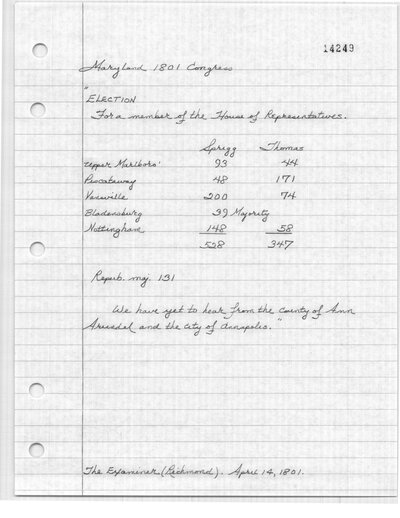 14249
Maryland 1801 Congress
"
ELECTION
For a member of the House of Representatives.
Sprigg Thomas
Upper Marlboro' 93 44
Piscataway 48 171
Vansville 200 74
Bladensburg 39 Majority
Nottingham 148 58
528 347
Repub. maj. 131
We have yet to hear from the county of Ann
Arundel and the city of Annapolis."
The Examiner (Richmond). April 14, 1801.